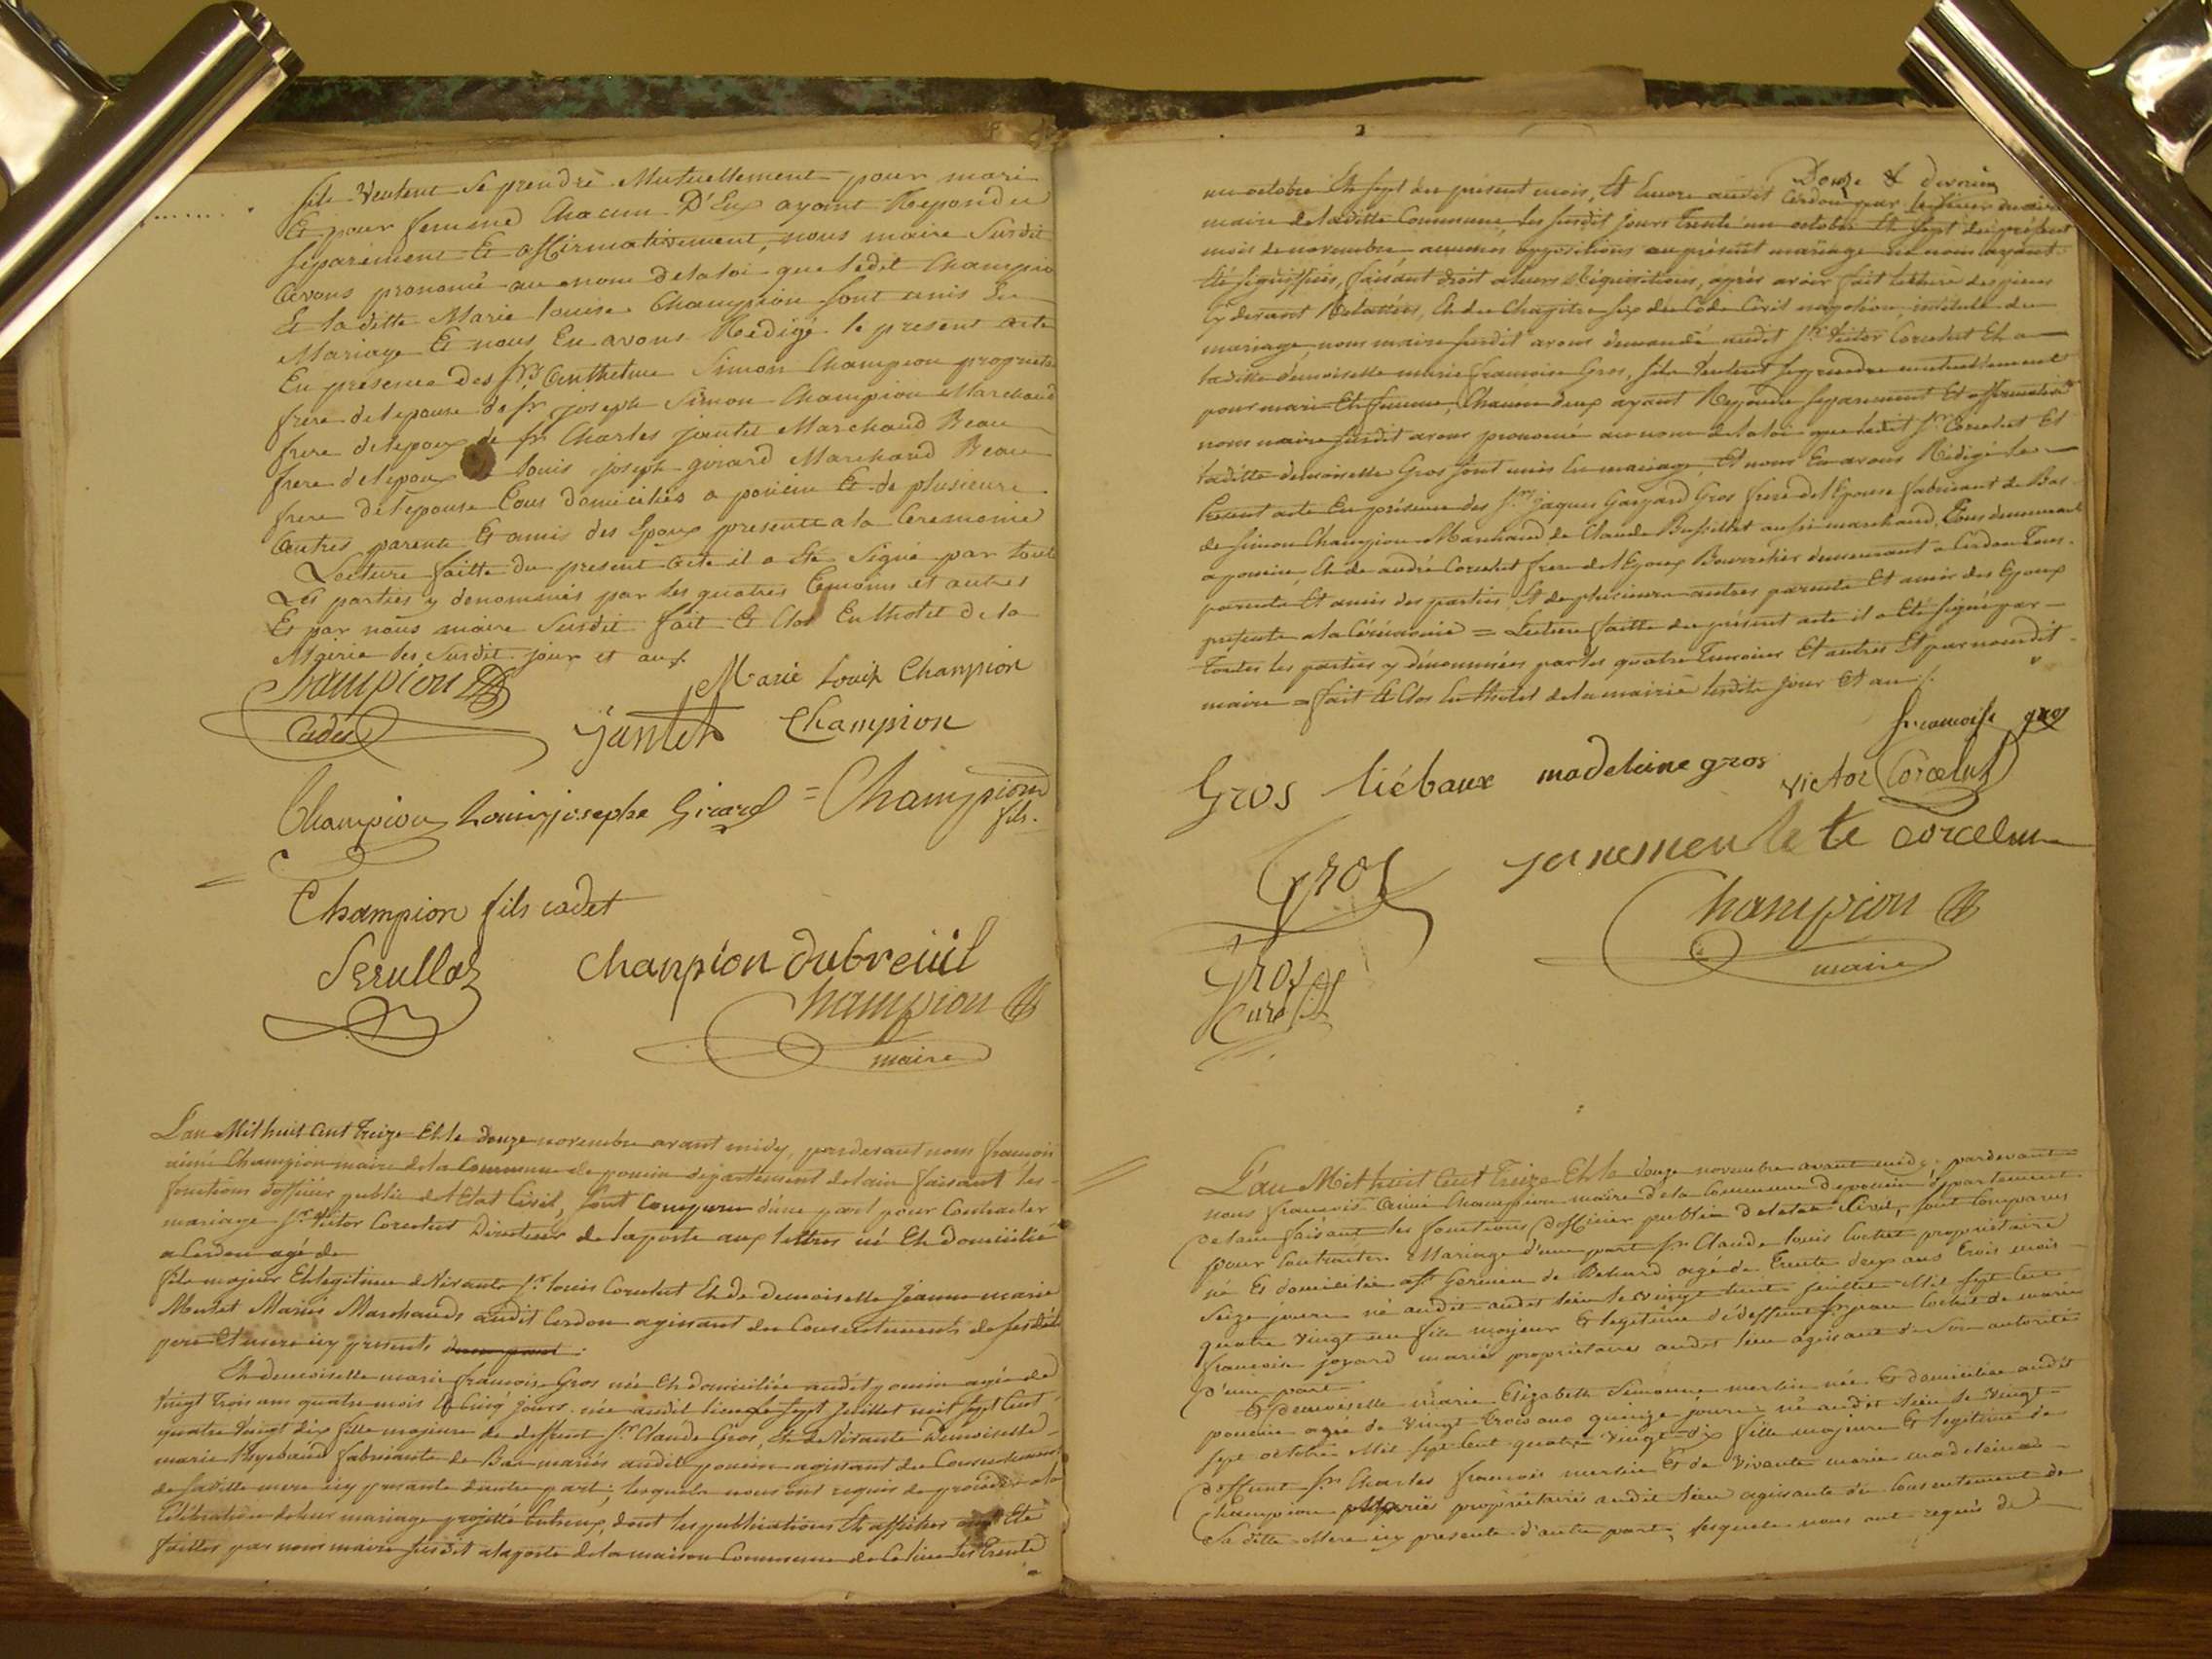 sils veulent se prendre Mutuellement pour mari
Et pour femme Chacun D'Eux ayant Repondu
separement Et affirmativement, nous maire Susdit
avons prononcé au nom de la loi que ledit Champion
Et la ditte Marie louise Champion sont unis En
Mariage Et nous En avons Redigé le present acte
En presence des srs Anthelme Simon Champion proprietre
frere de lepouse de sr joseph Simon Champion Marchand
frere de lepoux de sr Charles jantet Marchand Beau
frere de lepoux louis joseph girard Marchand Beau
frere de lepouse tous domiciliés a poncin Et de plusieurs
autres parents Et amis des Epoux presents a la Ceremonie
Lecture faitte du present acte il a Eté Signé par toutes
Les parties y denommées par les quatres temoins et autres
Et par nous maire Susdit fait Et Clos En lhotel de la
Mairie les Susdit jour et an
Champion
Cadet
Marie Louise Champion
Jantet Champion
Champion Louis josephe Girard = Champion
fils.
Champion fils cadet
Serullaz Chanpion dubreüil
Champion
maire
L'an Mil huit Cent treize Et le Douze novembre avant midy, pardevant nous francois
aimé Champion maire de la Commune de poncin departement de lain faisant les
fonctions d'officier public de l'Etat Civil, sont Comparu d'une part pour Contracter
mariage sr Victor Corcelut Directeur de la poste aux lettres né Et domicilié
a Cerdon agé de
fils majeur Et legitime de Vivants sr louis Corcelut Et de demoiselle jeanne marie
Mariés Marchands audit Cerdon agissant du Consentement de sesdits
pere Et mere icy presents
Et demoiselle marie francoise Gros née Et domiciliée audit poncin agée de
vingt trois ans quatre mois Et Cinq jours née audit lieu le sept juillet mil sept Cent
quatre vingt dix fille majeure de deffunt sr Claude Gros, Et de Vivante demoiselle
marie fabricante de Bas mariés audit poncin agissant du Consentement
de saditte mere icy presente d'autre part; lesquels nous ont requis de proceder a la
Célébration de leur mariage projetté Entreux, dont les publications Et affiches ont Eté
faittes par nous maire susdit a la porte de la maison Commune de Ce lieu les trente
un octobre Et sept du present mois, Et Encore audit Cerdon par
maire de laditte Commune, les susdit jours trente un octobre Et sept du présent
mois de novembre aucunes oppositions au présent mariage ne nous ayant
Eté signiffiées, faisant droit a leurs Réquisitions, après avoir fait lecture des pieces
Cy devant Relattées, Et du Chapitre six du Code Civil napoleon, intitulé du
mariage, nous maire susdit avons demandé audit sr Victor Corcelut Et a
laditte demoiselle marie francoise Gros, sils Veulent se prendre mutuellement
pour mari Et femme, Chacun deux ayant Repondu separement Et affirmativemt
nous maire susdit avons prononcé au nom de la loi que ledit sr Corcelut Et
laditte demoiselle Gros sont unis En mariage, Et nous En avons Rédigé le
Present acte En présence des srs jaques Gaspard Gros frere de l'Epouse fabricant de Bas
de simon Champion Marchand de Claude aussi marchand, Tous demeurant
a poncin, Et de andré Corcelut frere de l'Epoux Bourrelier demeurant a Cerdon Tous
parents Et amis des parties, Et de plusieurs autres parents Et amis des Epoux
presents a la Cérémonie = Lecture faitte du présent acte il a Eté signé par
toutes les parties y dénommées par les quatre Temoins Et autres Et par nous dit
maire = fait Et Clos En lhotel de la mairie lesdits jour Et an
francoise gros
Gros liébaux madeleine gros Victor Corcelut
Gros corcelut
Champion
maire
Gros
Curé
L'an Mil huit Cent Treize Et le douze novembre avant midy, pardevant
nous francois Aimé Champion maire de la Commune de poncin departement
de lain faisant les fonctions d'officier public de l'etat Civil, sont Comparus
pour Contracter Mariage d'une part sr Claude louis Cochet propriétaire
né Et domicilié a st Germain de Behard agé de Trente deux ans trois mois
seize jours né audit audit lieu le vingt huit juillet Mil sept Cent
quatre vingt un fils majeur Et legitime de deffunt sr jean Cochet de marie
francoise joyard mariés proprietaires audit lieu agissant de Son autorité
d'une part
Et Demoiselle Marie Elizabeth Simonne merlin née Et domiciliée audit
poncin agée de vingt trois ans quinze jours né audit lieu le vingt
sept octobre Mil sept Cent quatre vingt dix fille majeure Et legitime de
deffunt sr Charles francois merlin Et de Vivante marie madeleine
Champion mariés propriétaires audit lieu agissante du Consentement de
Sa ditte Mere icy presente d'autre part, lesquels nous ont requis de